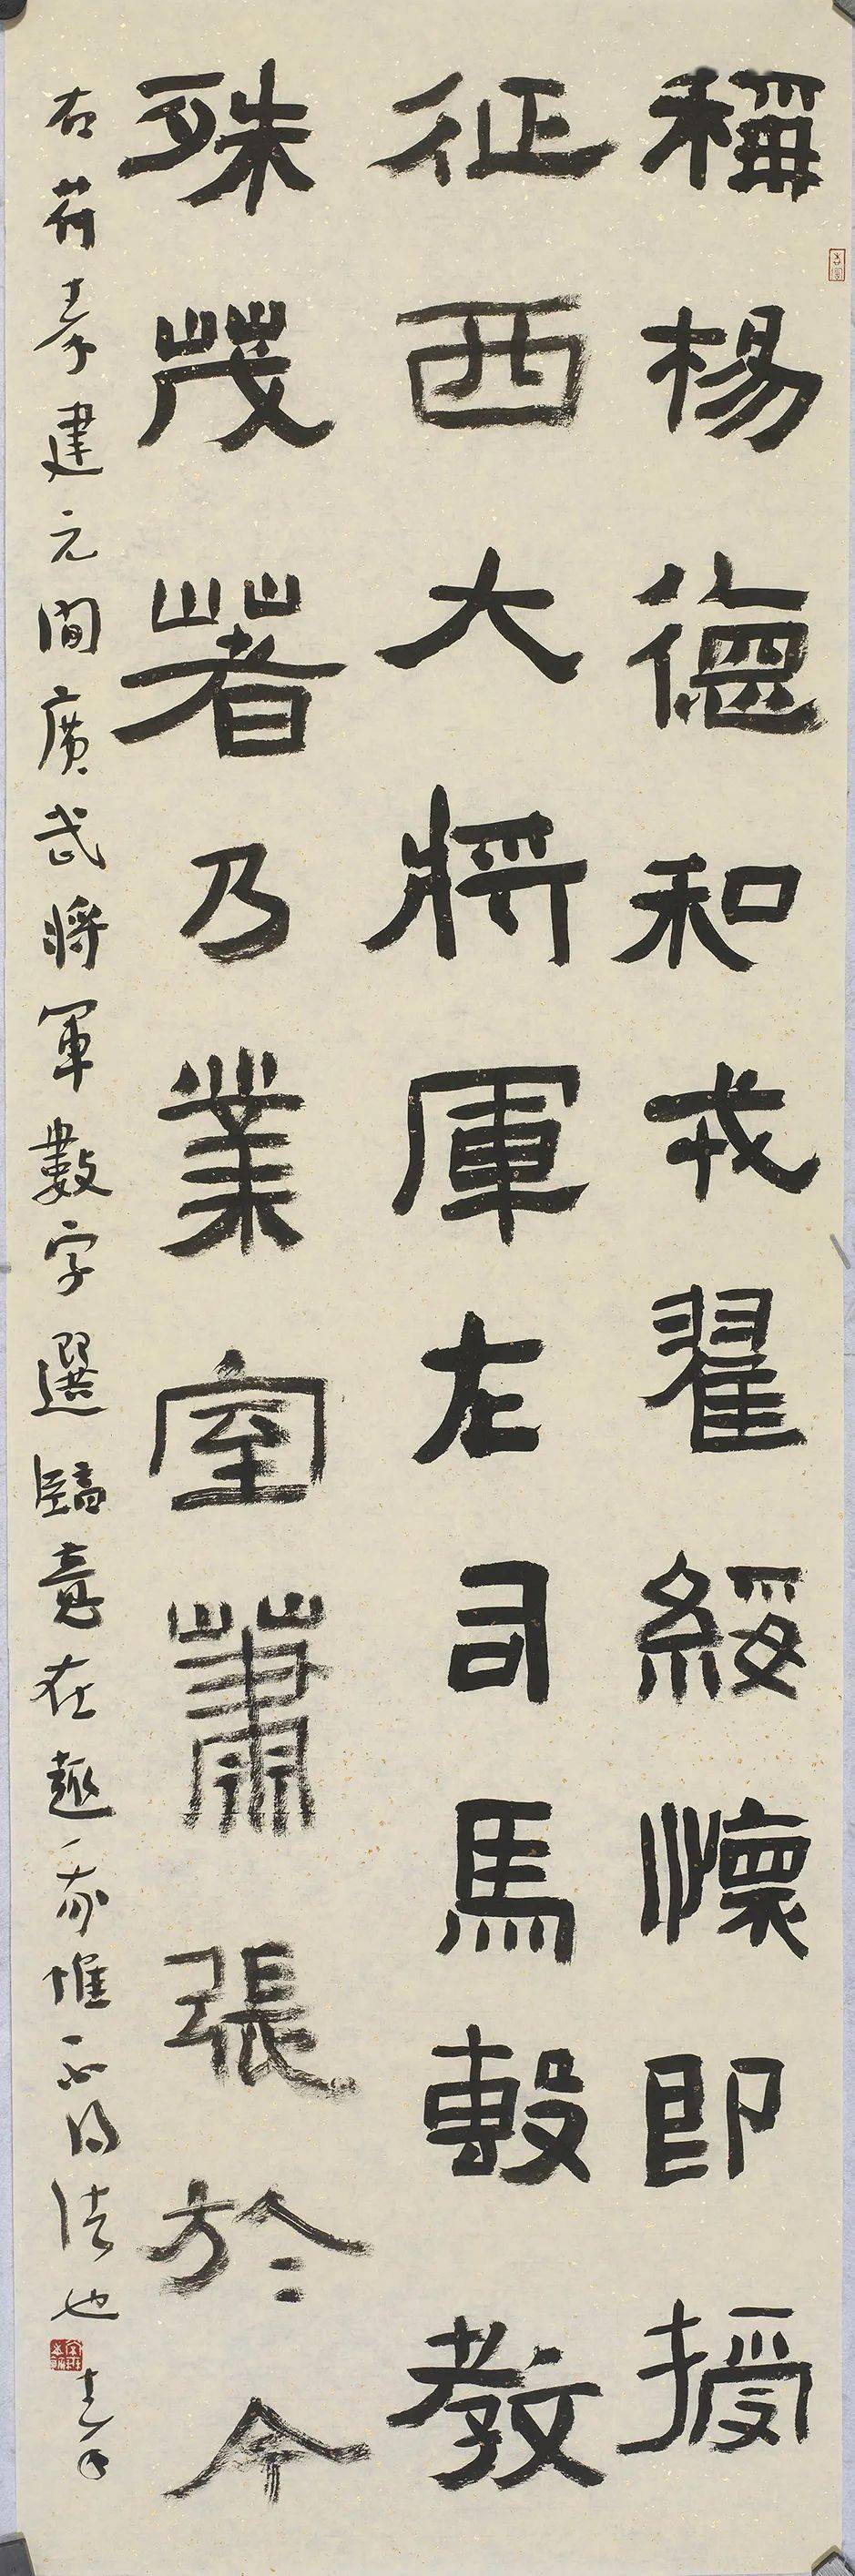 稱楊德和戎翟綏懷即授
征西大將軍左司馬轂教
殊茂著乃業室蕭張於今
右苻秦建元間廣武將軍數字選臨意在趣不唯正得法也